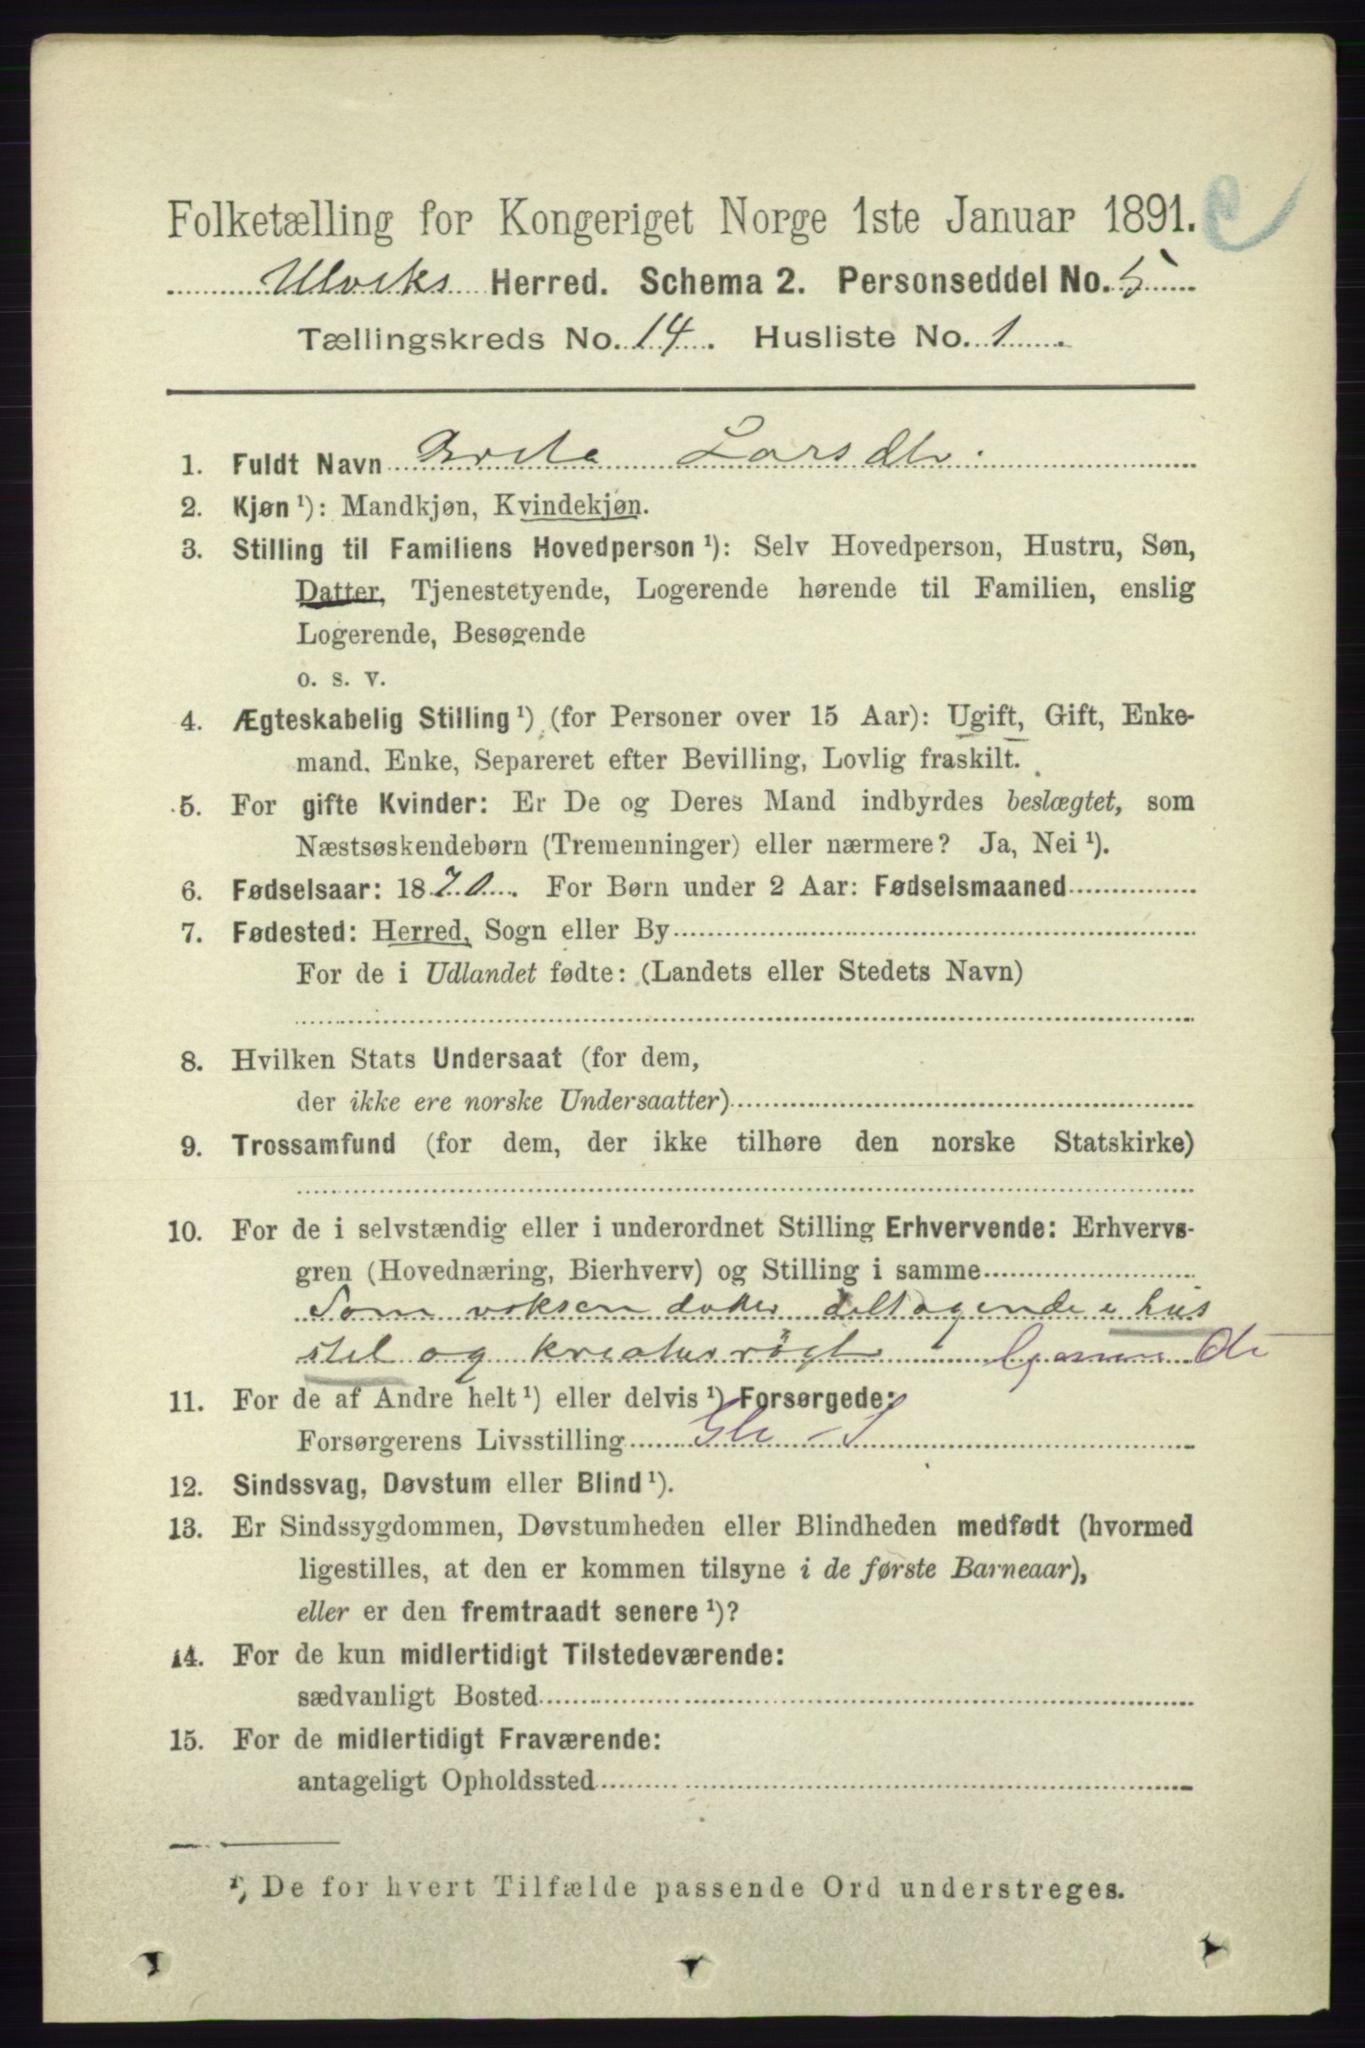 Folketælling for Kongeriget Norge 1ste Januar 1891.
Ulviks Herred. Schema 2. Personseddel No. 5
Tællingskreds No. 14. Husliste No. 1.
1. Fuldt Navn Larsdtr.
2. Kjøn ¹): Mandkjøn, Kvindekjøn.
3. Stilling til Familiens Hovedperson ¹): Selv Hovedperson, Hustru, Søn,
Datter, Tjenestetyende, Logerende hørende til Familien, enslig
Logerende, Besøgende
o. s. v.
4. Ægteskabelig Stilling ¹) (for Personer over 15 Aar): Ugift, Gift, Enke-
mand. Enke, Separeret efter Bevilling, Lovlig fraskilt.
5. For gifte Kvinder: Er De og Deres Mand indbyrdes beslægtet, som
Næstsøskendebørn (Tremenninger) eller nærmere? Ja, Nei ¹).
6. Fødselsaar: 1870. For Børn under 2 Aar: Fødselsmaaned
7. Fødested: Herred, Sogn eller By
For de i Udlandet fødte: (Landets eller Stedets Navn)
8. Hvilken Stats Undersaat (for dem,
der ikke ere norske Undersaatter)
9. Trossamfund (for dem, der ikke tilhøre den norske Statskirke)
10. For de i selvstændig eller i underordnet Stilling Erhvervende: Erhvervs-
gren (Hovednæring, Bierhverv) og Stilling i samme
Som voksen datter deltagende i hus
stel og kreaturrögt
11. For de af Andre helt ¹) eller delvis ¹) Forsørgede:
Forsørgerens Livsstilling
12. Sindssvag, Døvstum eller Blind ¹).
13. Er Sindssygdommen, Døvstumheden eller Blindheden medfødt (hvormed
ligestilles, at den er kommen tilsyne i de første Barneaar),
eller er den fremtraadt senere ¹)?
14. For de kun midlertidigt Tilstedeværende:
sædvanligt Bosted
15. For de midlertidigt Fraværende:
antageligt Opholdssted
¹) De for hvert Tilfælde passende Ord understreges.